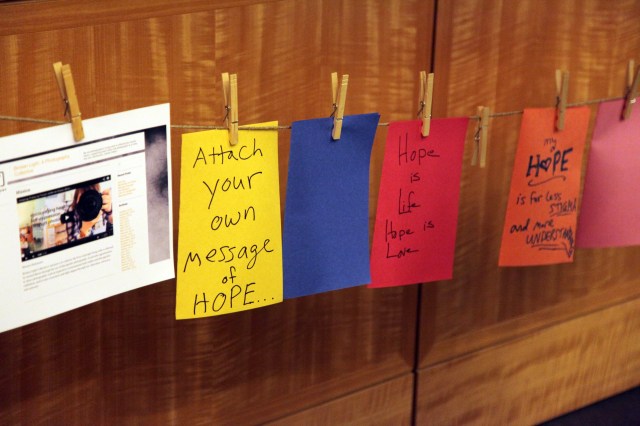 Attach
your
own
message
of
HOPE...
Hope
is
Life
Hope is
Love
my
HOPE
is for less
STIGMA
and more